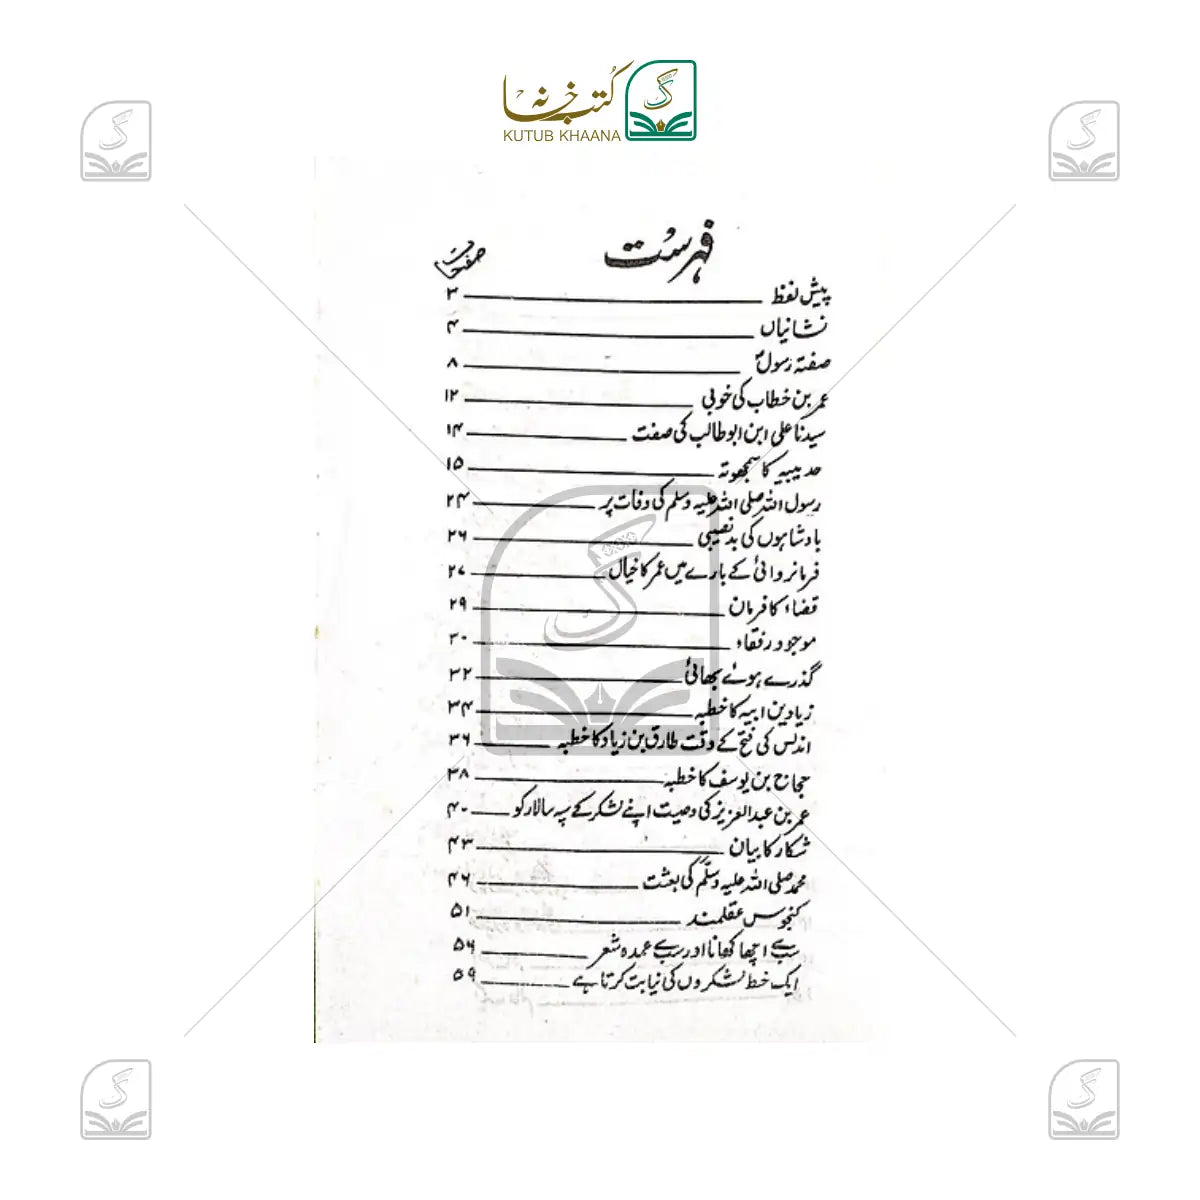 کتب خانہ
KUTUB KHAANA
فہرست
صفحات
پیش لفظ ۳
نشانیاں ۴
صفتہ رسولؐ ۸
عمر بن خطاب کی خوبی ۱۲
سیدنا علی ابن ابو طالب کی صفت ۱۴
حدیبیہ کا سمجھوتہ ۱۵
رسول اللہ صلی اللہ علیہ وسلم کی وفات پر ۲۴
بادشاہوں کی بدنصیبی ۲۶
فرمانروائی کے بارے میں عمر کا خیال ۲۷
قضاء کا فرمان ۲۹
موجود رفقاء ۳۰
گذرے ہوئے بھائی ۳۲
زیاد بن ابیہ کا خطبہ ۳۴
اندلس کی فتح کے وقت طارق بن زیاد کا خطبہ ۳۶
حجاج بن یوسف کا خطبہ ۳۸
عمر بن عبدالعزیز کی وصیت اپنے لشکر کے سپہ سالار کو ۴۰
شکار کا بیان ۴۳
محمد صلی اللہ علیہ وسلّم کی بعثت ۴۶
کنجوس عقلمند ۵۱
سب سے اچھا کھانا اور سب سے عمدہ شعر ۵۶
ایک خط لشکروں کی نیابت کرتا ہے ۵۹